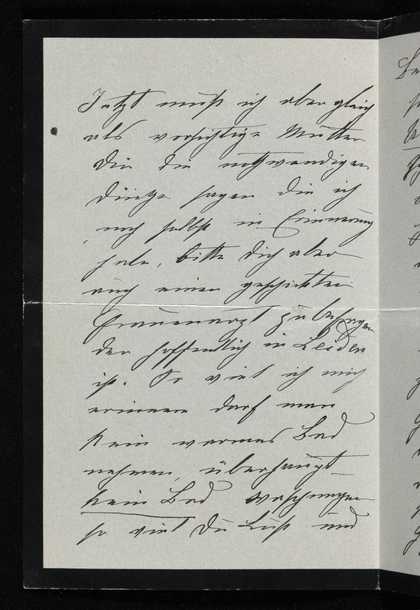 Jetzt muß ich aber gleich
als vorsichtige Mutter
Dir die notwendigen
Dinge sagen die ich
noch selbst in Erinnerung
habe, bitte Dich aber
auch einen geschickten
Frauenarzt zu befragen
der hoffentlich in Leiden
ist. So viel ich mich
erinnere darf man
kein warmes Bad
nehmen, überhaupt
kein Bad Waschungen
so viel Du Lust und